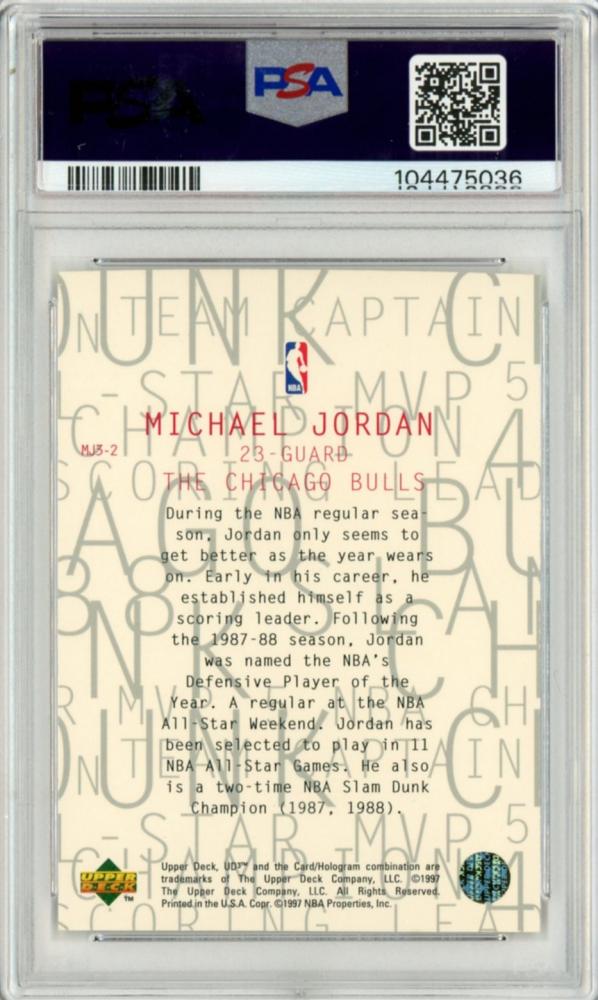 PSA
PSA
104475036
NBA
MICHAEL JORDAN
MJ3-2
23-GUARD
THE CHICAGO BULLS
During the NBA regular sea-
son, Jordan only seems to
get better as the year wears
on. Early in his career, he
established himself as a
scoring leader. Following
the 1987-88 season, Jordan
was named the NBA's
Defensive Player of the
Year. A regular at the NBA
All-Star Weekend. Jordan has
been selected to play in 11
NBA All-Star Games. He also
is a two-time NBA Slam Dunk
Champion (1987, 1988).
UPPER
DECK
TM
Upper Deck, UD3™ and the Card/Hologram combination are
trademarks of The Upper Deck Company, LLC. ©1997
The Upper Deck Company, LLC. All Rights Reserved.
Printed in the U.S.A. Copr. ©1997 NBA Properties, Inc.
DUNK CH
ON TEAM CAPTAIN
L-STAR MVP 5
CHAMPION 4
SCORING LEAD
AGO BU
R MVP
DUNK CH
ON TEAM CAPTAIN
L-STAR MVP 5
CHAMPION 4
SCORING LEAD